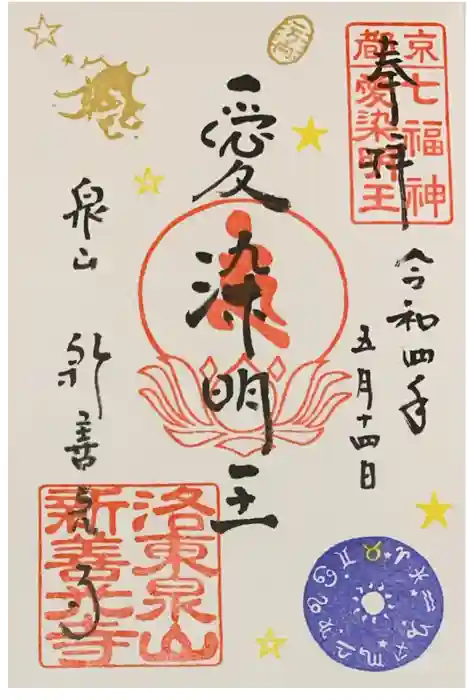 奉拝
京 七福神
都 愛染明王
令和四年
五月十四日
愛染明王
泉山 新善光寺
洛東泉山
新善光寺